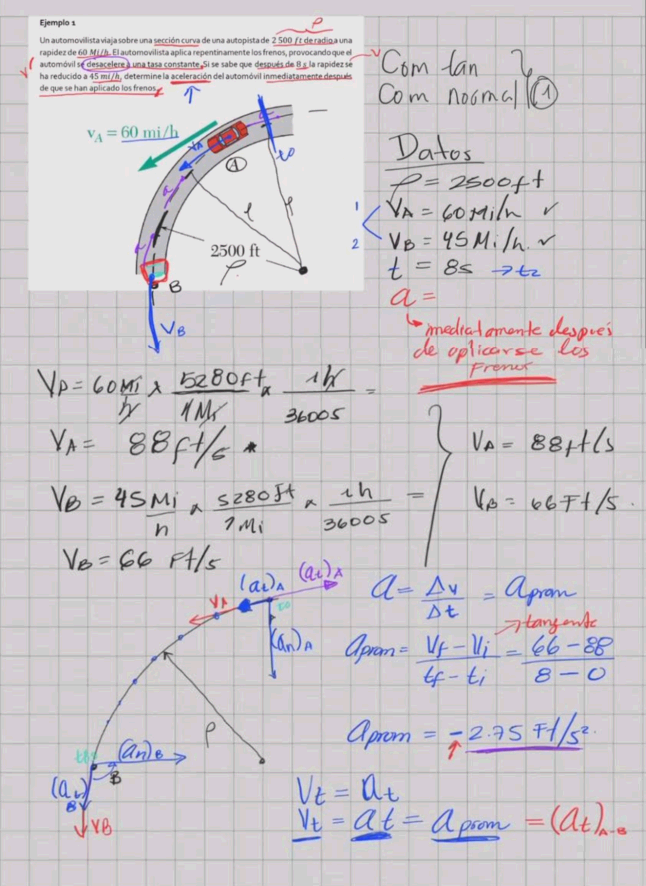 Ejemplo 1
ρ
Un automovilista viaja sobre una sección curva de una autopista de 2 500 ft de radio a una
rapidez de 60 Mi/h. El automovilista aplica repentinamente los frenos, provocando que el
automóvil se desacelere a una tasa constante. Si se sabe que después de 8 s la rapidez se
ha reducido a 45 mi/h, determine la aceleración del automóvil inmediatamente después
de que se han aplicado los frenos.
Com tan
Com normal 1
vA = 60 mi/h
A
t0
2500 ft
ρ
B
VB
Datos
ρ = 2500ft
1 VA = 60 Mi/h ✓
2 VB = 45 Mi/h. ✓
t = 8s → t2
a =
↳ mediatamente después
de aplicarse los
Frenos
VA = 60 Mi/h x 5280ft/1Mi x 1h/3600s =
VA = 88 ft/s *
VB = 45 Mi/h x 5280ft/1Mi x 1h/3600s =
VB = 66 Ft/s
VA = 88ft/s
VB = 66 Ft/s.
VA (at)A (at)A
t0
(an)A
ρ
t8s (an)B
B
(at)B
VB
a = Δv/Δt = aprom
→ tangente
aprom = Vf - Vi/tf - ti = 66 - 88/8 - 0
aprom = - 2.75 Ft/s².
Vt = at
Vt = at = aprom = (at)A-B